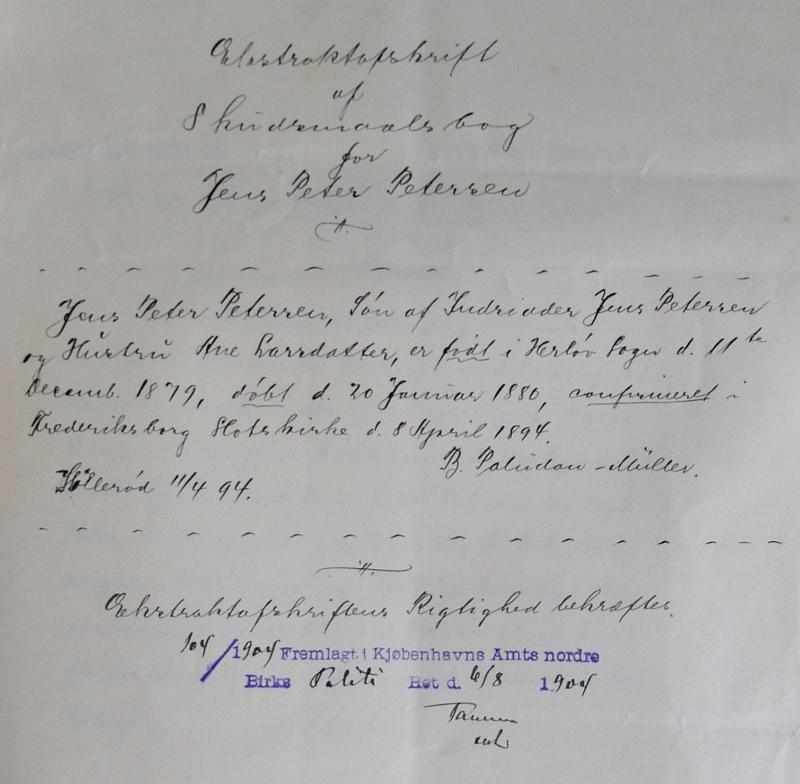 Ekstraktafskrift
af
Skudsmaalsbog
for
Jens Peter Petersen
Jens Peter Petersen, Søn af Indsidder Jens Petersen
og Hustru Ane Larsdatter, er født i Herløv Sogn d. 11te
Decemb. 1879, døbt d. 20 Januar 1880, confirmeret i
Frederiksborg Slotskirke d. 8 April 1894.
B. Paludan-Müller.
Hillerød 11/4 94.
Ekstraktafskriftens Rigtighed bekræftes.
104/1904 Fremlagt i Kjøbenhavns Amts nordre
Birks Politi Ret d. 6/8 1904